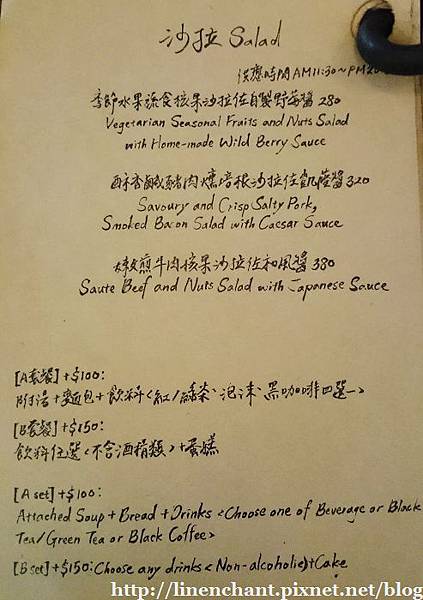 沙拉 Salad
供應時間 AM11:30~PM2
季節水果蔬食核果沙拉佐自製野莓醬 280
Vegetarian Seasonal Fruits and Nuts Salad
with Home-made Wild Berry Sauce
酥香鹹豬肉燻培根沙拉佐凱薩醬 320
Savoury and Crisp Salty Pork,
Smoked Bacon Salad with Caesar Sauce
嫩煎牛肉核果沙拉佐和風醬 380
Saute Beef and Nuts Salad with Japanese Sauce
[A套餐]+$100:
附湯+麵包+飲料<紅/綠茶、泡沫、黑咖啡四選一>
[B套餐]+$150:
飲料任選<不含酒精類>+蛋糕
[A set]+$100:
Attached Soup+Bread+Drinks <Choose one of Beverage or Black
Tea/Green Tea or Black Coffee>
[B set]+$150:Choose any drinks<Non-alcoholic>+Cake
http://linenchant.pixnet.net/blog